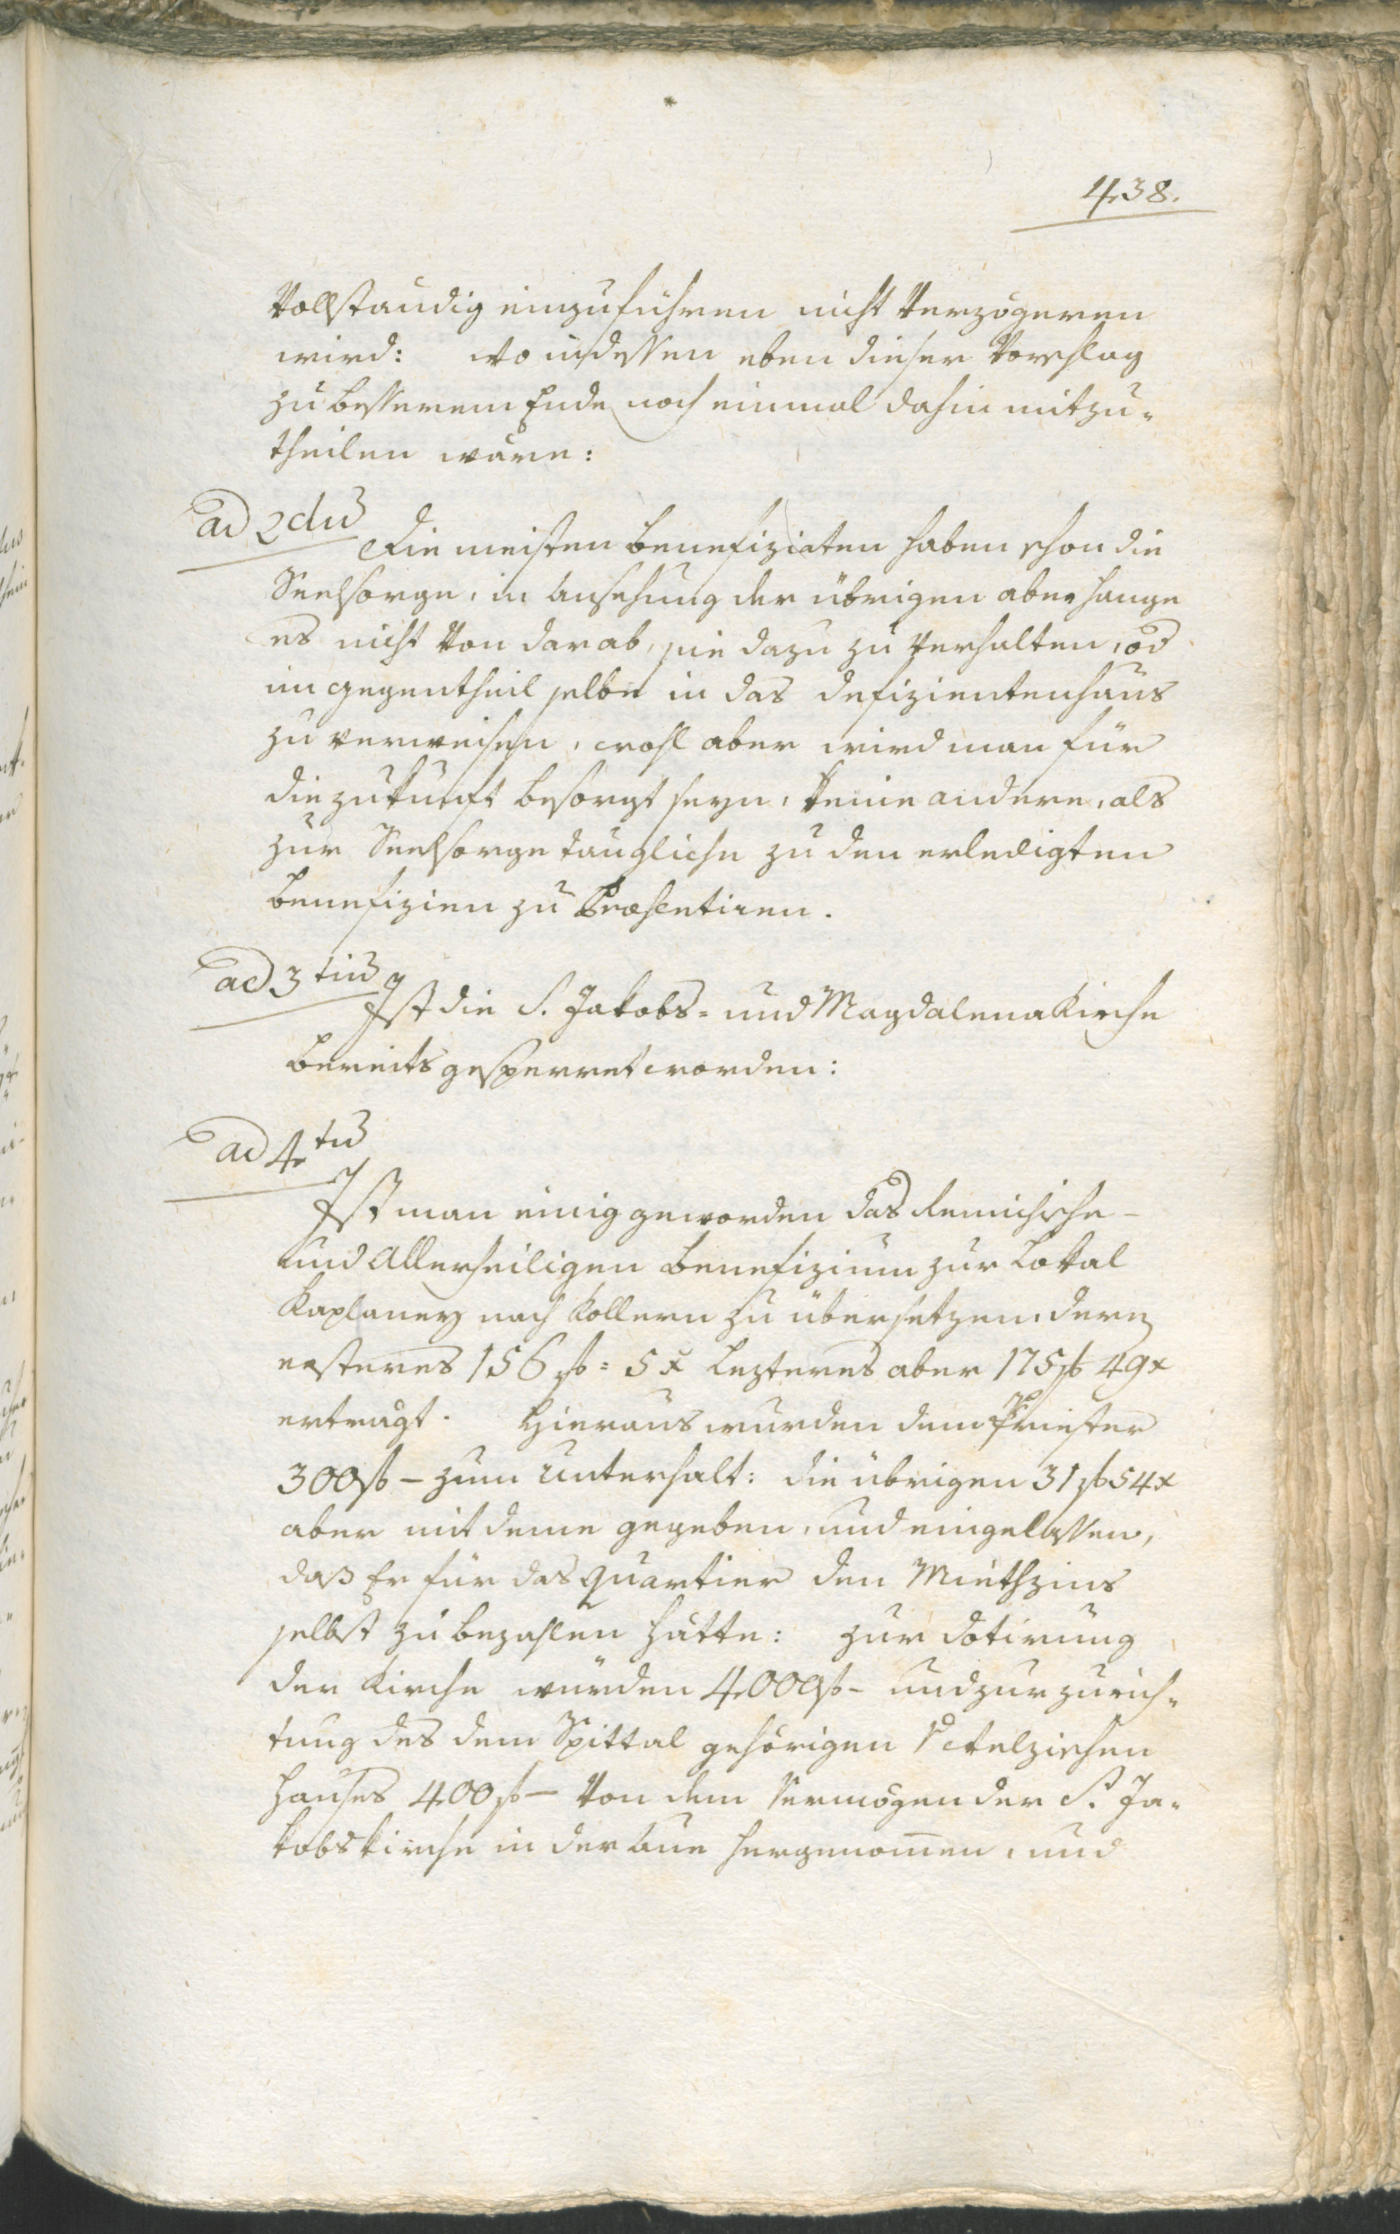 438.
Vollstandig einzuführen nicht verzögeren
wird: wo indessen eben dieser Vorschlag
zu besserem Ende noch einmal dahin mitzu-
theilen wäre:
ad 2dum
Die meisten Benefiziaten haben schon die
Seelsorge, in Ansehung der übrigen aber hange
es nicht von dar ab, sie dazu zu verhalten, od
im gegentheil selbe in das Defizientenhaus
zu verweisen, wohl aber wird man für
die zukunft besorgt seyn, keine andere, als
zur Seelsorge taugliche zu den erledigten
Benefizien zu Præsentiren.
ad 3tium
Ist die S. Jakobs- und Magdalena Kirche
bereits gesperret worden:
ad 4tum
Ist man einig geworden das
und Allerheiligen Benefizium zur Lokal
Kaplaney nach Kollern zu übersetzen, deren
ersteres 156 f = 5 x lezteres aber 175 f 49 x
ertragt. Hieraus wurden dem Priester
300 f – zum Unterhalt: die übrigen 31 f 54 x
aber mit deme gegeben, und eingelassen,
daß Er für das Quartier den Miethzins
selbst zu bezahlen hätte: zur Dotirung
der Kirche würden 4000 f – und zur zurich-
tung des dem Spittal gehörigen
Hauses 400 f – von dem Vermögen der S. Ja-
kobskirche in der Aue hergenom̅en, und